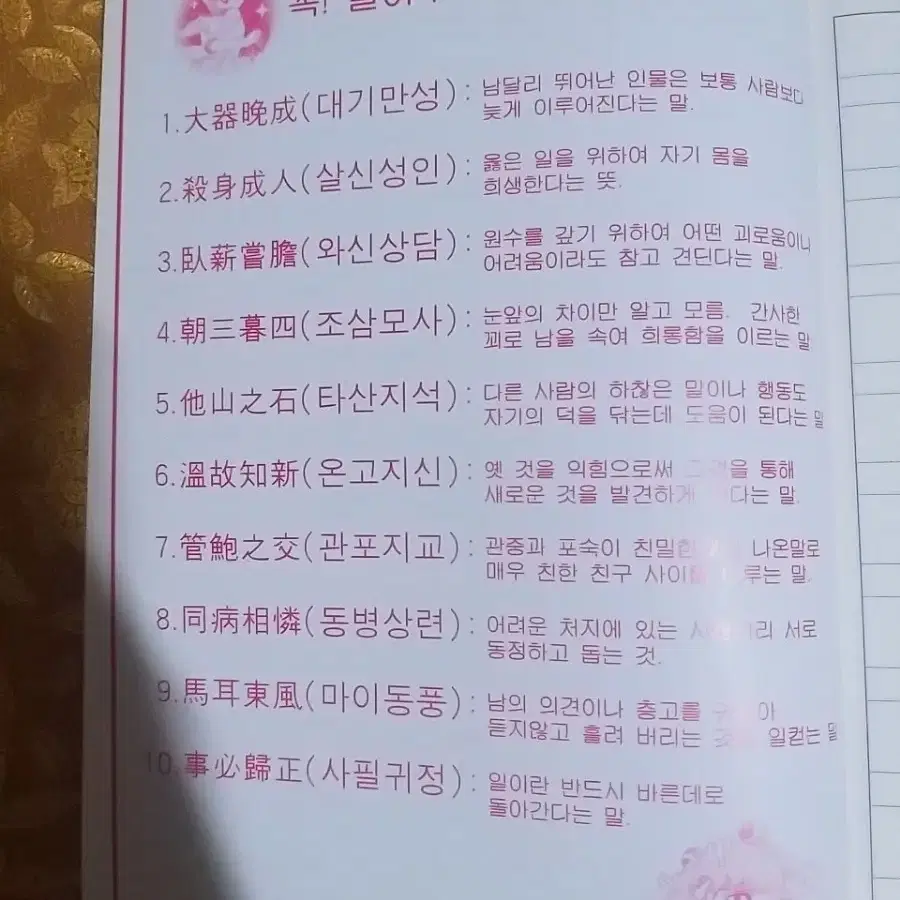 꼭! 알아
1.大器晩成(대기만성) : 남달리 뛰어난 인물은 보통 사람보다
늦게 이루어진다는 말.
2.殺身成人(살신성인) : 옳은 일을 위하여 자기 몸을
희생한다는 뜻.
3.臥薪嘗膽(와신상담) : 원수를 갚기 위하여 어떤 괴로움이나
어려움이라도 참고 견딘다는 말.
4.朝三暮四(조삼모사) : 눈앞의 차이만 알고 모름. 간사한
꾀로 남을 속여 희롱함을 이르는 말
5.他山之石(타산지석) : 다른 사람의 하찮은 말이나 행동도
자기의 덕을 닦는데 도움이 된다는 말
6.溫故知新(온고지신) : 옛 것을 익힘으로써 통해
새로운 것을 발견하게 다는 말.
7.管鮑之交(관포지교) : 관중과 포숙이 친밀한 나온말로
매우 친한 친구 사이를 이루는 말.
8.同病相憐(동병상련) : 어려운 처지에 있는 서로
동정하고 돕는 것.
9.馬耳東風(마이동풍) : 남의 의견이나 충고를
듣지않고 흘려 버리는 일컫는 말
10.事必歸正(사필귀정) : 일이란 반드시 바른데로
돌아간다는 말.